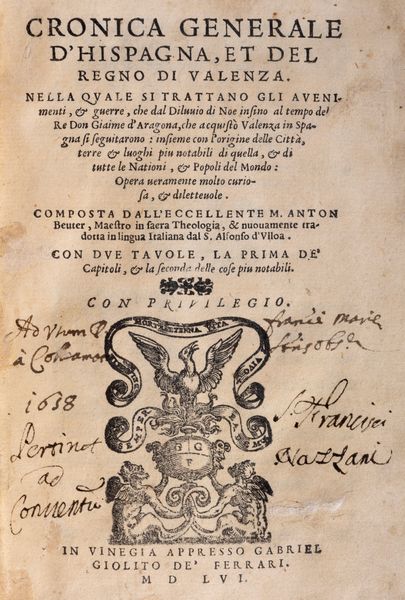 CRONICA GENERALE
D'HISPAGNA, ET DEL
REGNO DI VALENZA.
NELLA QVALE SI TRATTANO GLI AVENI-
menti, & guerre, che dal Diluuio di Noe insino al tempo del
Re Don Giaime d'Aragona, che acquistò Valenza in Spa-
gna si seguitarono: insieme con l'origine delle Città,
terre & luoghi piu notabili di quella, & di
tutte le Nationi, & Popoli del Mondo:
Opera ueramente molto curio-
sa, & diletteuole.
COMPOSTA DALL'ECCELLENTE M. ANTON
Beuter, Maestro in sacra Theologia, & nuouamente tra-
dotta in lingua Italiana dal S. Alfonso d'Vlloa.
CON DVE TAVOLE, LA PRIMA DE'
Capitoli, & la seconda delle cose piu notabili.
CON PRIVILEGIO.
Ad Vsum
à
1638
Pertinet
ad
Conuentũ
S. Francisci
SEMPER
G G
F
IN VINEGIA APPRESSO GABRIEL
GIOLITO DE' FERRARI.
M D LVI.